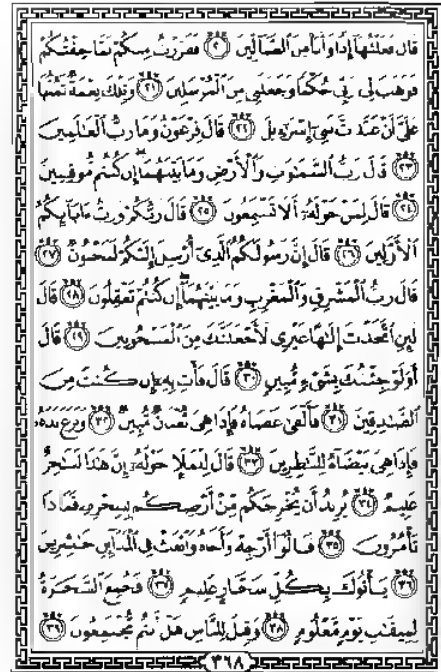 قَالَ فَعَلْتُهَا إِذًا وَأَنَا۠ مِنَ ٱلضَّآلِّينَ ٢٠ فَفَرَرْتُ مِنكُمْ لَمَّا خِفْتُكُمْ
فَوَهَبَ لِى رَبِّى حُكْمًا وَجَعَلَنِى مِنَ ٱلْمُرْسَلِينَ ٢١ وَتِلْكَ نِعْمَةٌ تَمُنُّهَا
عَلَىَّ أَنْ عَبَّدتَّ بَنِىٓ إِسْرَٰٓءِيلَ ٢٢ قَالَ فِرْعَوْنُ وَمَا رَبُّ ٱلْعَٰلَمِينَ
٢٣ قَالَ رَبُّ ٱلسَّمَٰوَٰتِ وَٱلْأَرْضِ وَمَا بَيْنَهُمَآ إِن كُنتُم مُّوقِنِينَ
٢٤ قَالَ لِمَنْ حَوْلَهُۥٓ أَلَا تَسْتَمِعُونَ ٢٥ قَالَ رَبُّكُمْ وَرَبُّ ءَابَآئِكُمُ
ٱلْأَوَّلِينَ ٢٦ قَالَ إِنَّ رَسُولَكُمُ ٱلَّذِىٓ أُرْسِلَ إِلَيْكُمْ لَمَجْنُونٌ ٢٧
قَالَ رَبُّ ٱلْمَشْرِقِ وَٱلْمَغْرِبِ وَمَا بَيْنَهُمَآ إِن كُنتُمْ تَعْقِلُونَ ٢٨ قَالَ
لَئِنِ ٱتَّخَذْتَ إِلَٰهًا غَيْرِى لَأَجْعَلَنَّكَ مِنَ ٱلْمَسْجُونِينَ ٢٩ قَالَ
أَوَلَوْ جِئْتُكَ بِشَىْءٍ مُّبِينٍ ٣٠ قَالَ فَأْتِ بِهِۦٓ إِن كُنتَ مِنَ
ٱلصَّٰدِقِينَ ٣١ فَأَلْقَىٰ عَصَاهُ فَإِذَا هِىَ ثُعْبَانٌ مُّبِينٌ ٣٢ وَنَزَعَ يَدَهُۥ
فَإِذَا هِىَ بَيْضَآءُ لِلنَّٰظِرِينَ ٣٣ قَالَ لِلْمَلَإِ حَوْلَهُۥٓ إِنَّ هَٰذَا لَسَٰحِرٌ
عَلِيمٌ ٣٤ يُرِيدُ أَن يُخْرِجَكُم مِّنْ أَرْضِكُم بِسِحْرِهِۦ فَمَاذَا
تَأْمُرُونَ ٣٥ قَالُوٓا۟ أَرْجِهْ وَأَخَاهُ وَٱبْعَثْ فِى ٱلْمَدَآئِنِ حَٰشِرِينَ
٣٦ يَأْتُوكَ بِكُلِّ سَحَّارٍ عَلِيمٍ ٣٧ فَجُمِعَ ٱلسَّحَرَةُ
لِمِيقَٰتِ يَوْمٍ مَّعْلُومٍ ٣٨ وَقِيلَ لِلنَّاسِ هَلْ أَنتُم مُّجْتَمِعُونَ ٣٩
٣٦٨